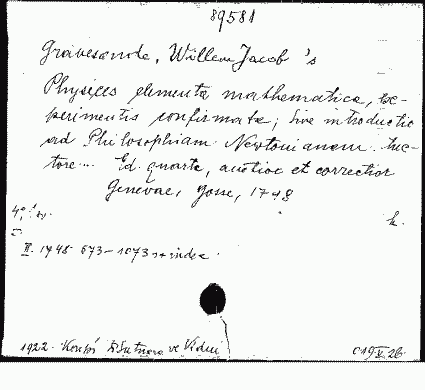 89581
Gravesande, Willem Jacob 's
Physices elementa mathematica, ex-
perimentis confirmata; sive introductio
ad Philosophiam Newtonianam. Auc-
tore... Ed. quarta, auctior et correctior
Genevae, Gosse, 1748
4°,
II. 1748 673-1073 s + index
1922. Koupí ve Vídni
C19